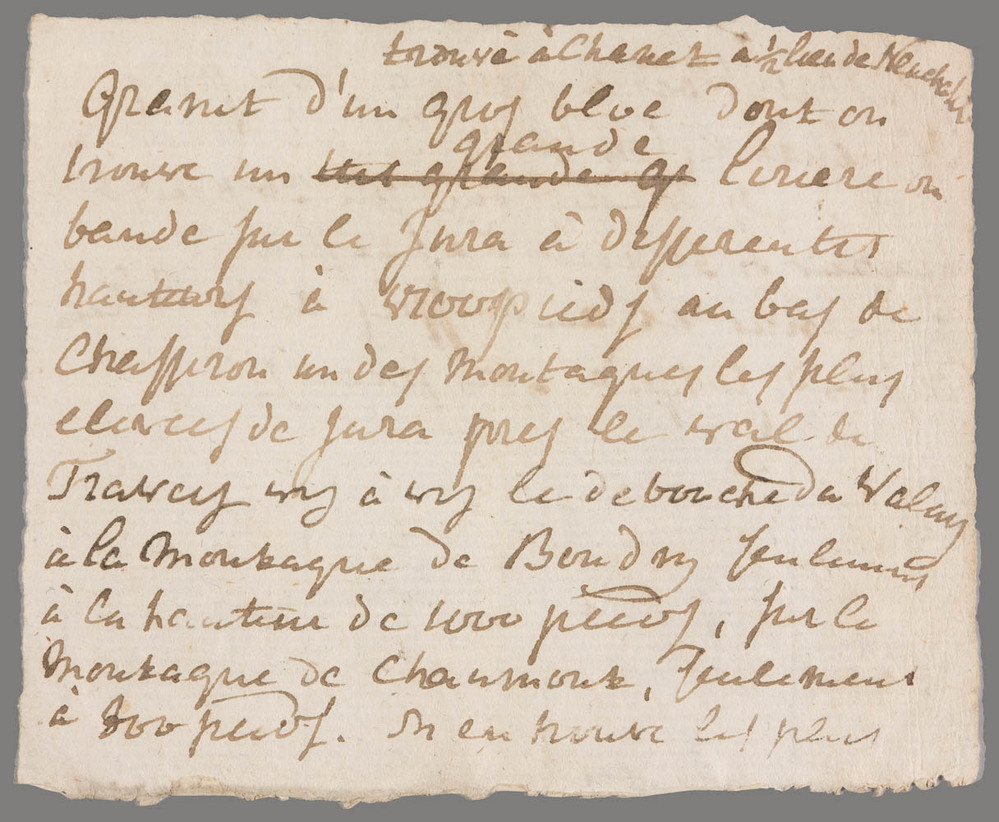 trouvé à Chanet a ½ lieu de Neuchatel
Granit d'un gros bloc dont on
trouve un tres grande qe grande lisiere ou
bande sur le Jura à differentes
hauteurs à pieds au bas de
Chasseron un des Montagnes les plus
elevees de Jura pres le val de
Travers vis à vis le debouché du Valais
à la Montagne de Boudry seulement
à la hauteur de 1000 pieds, sur la
Montagne de Chaumont, seulement
à 800 pieds. On en trouve les plus